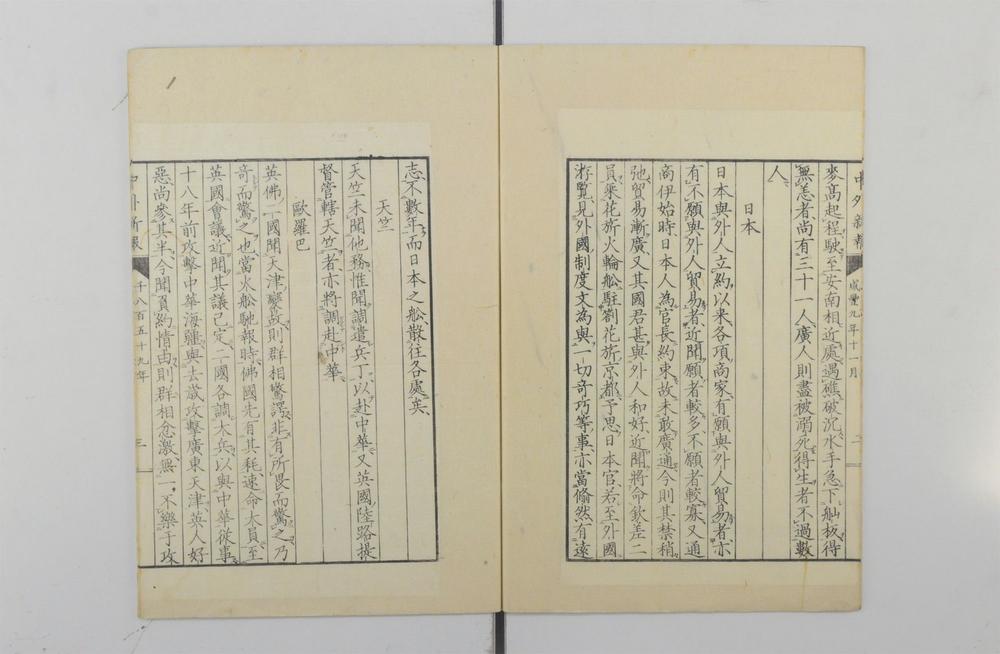 中外新報 咸豐九年十一月 二
麥高起程駛至安南相近處遇礁破沉水手急下舢板得
無恙者尚有三十一人廣人則盡被溺死得生者不過數
人
日本
日本與外人立約以来各項商家有願與外人貿易者亦
有不願與外人貿易者近聞願者較多不願者較寡又通
商伊始時日本人為官長約束故未敢廣通今則其禁稍
弛貿易漸廣又其國君甚與外人和好近聞將命欽差二
員乘花旂火輪舩駐劄花旂京都予思日本官若至外國
游覽見外國制度文為與一切奇巧等事亦當翛然有遠
志不數年而日本之舩散往各處矣
天竺
天竺未聞他務惟聞調遣兵丁以赴中華又英國陸路提
督管轄天竺者亦將調赴中華
歐羅巴
英佛二國聞天津變蓝則群相驚譯非有所畏而驚之乃
奇而驚之也當火舩馳報時佛國先有其耗速命大員至
英國會議近聞其議已定二國各調大兵以與中華從事
十八年前攻擊中華海疆與去歲攻擊廣東天津英人好
惡尚參其半今聞負約情由則群相忿激無一不樂于攻
中外新報 千八百五十九年 三